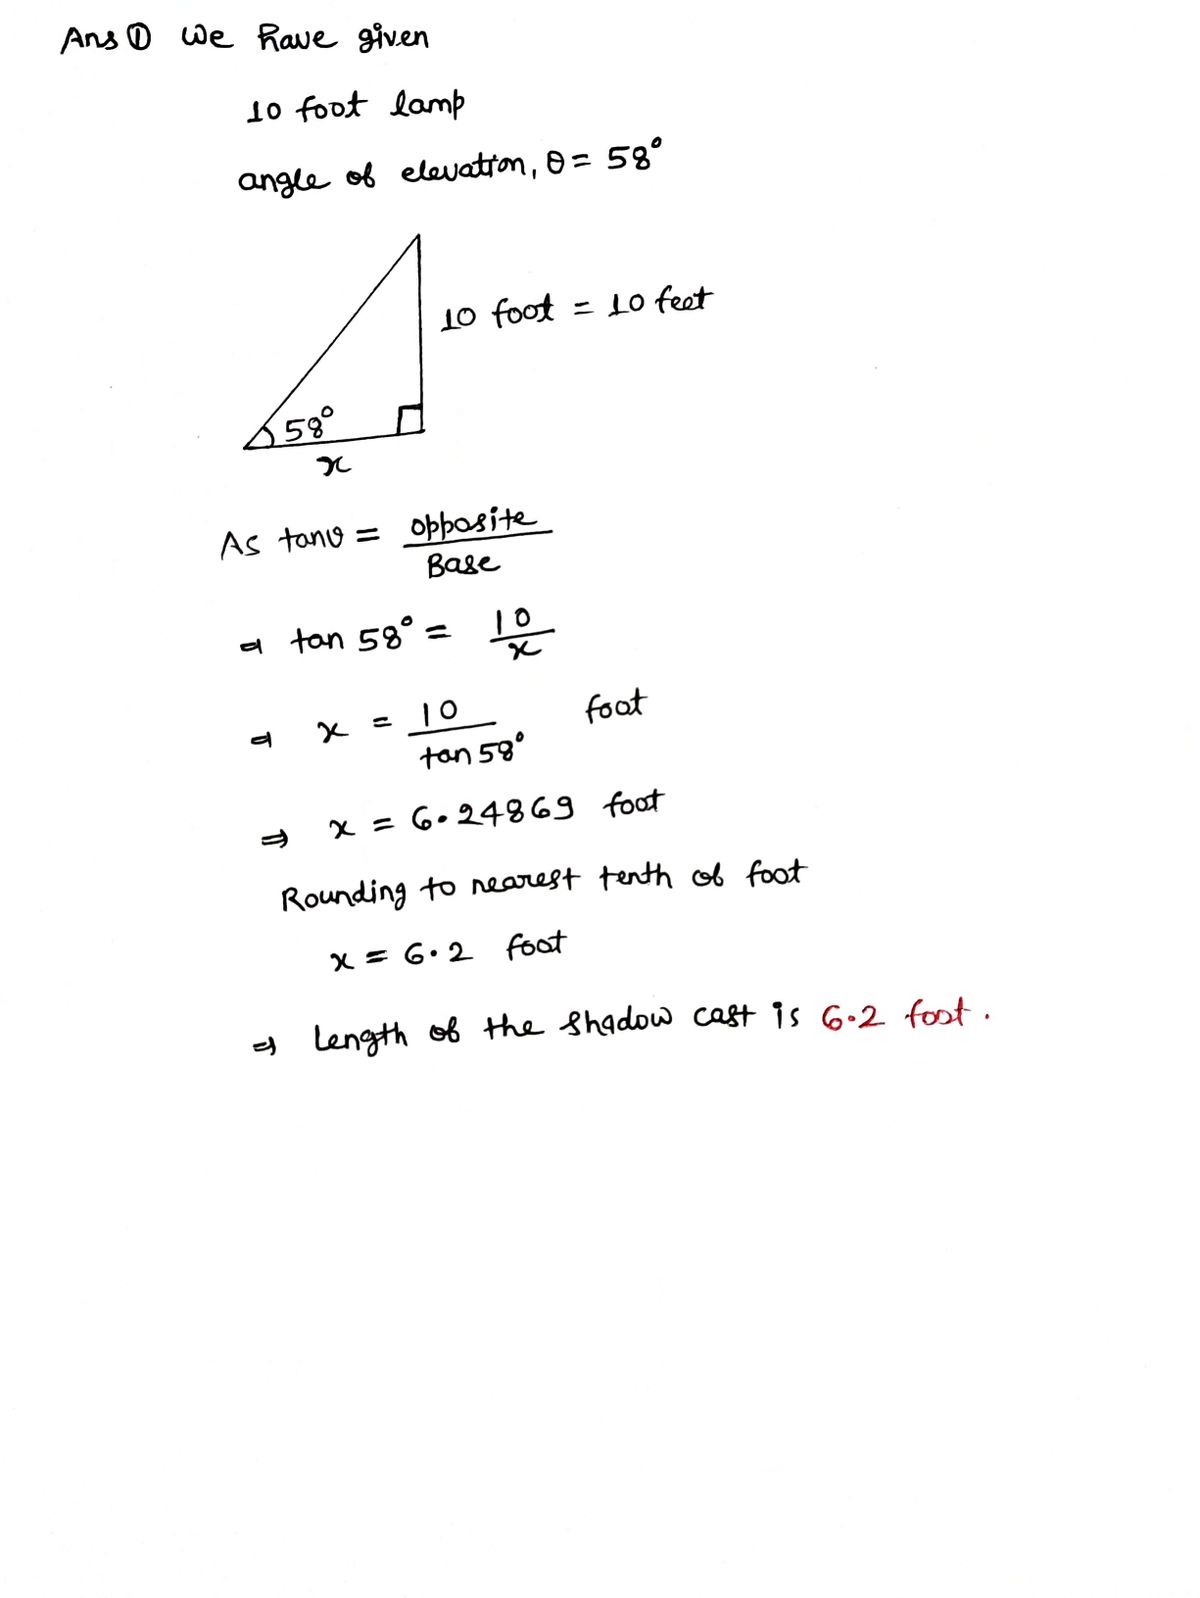 Ans ① We have given
10 foot lamp
angle of elevation, θ = 58°
10 foot = 10 feet
58°
x
As tanθ = opposite / Base
⇒ tan 58° = 10 / x
⇒ x = 10 / tan 58° foot
⇒ x = 6.24869 foot
Rounding to nearest tenth of foot
x = 6.2 foot
⇒ Length of the shadow cast is 6.2 foot.